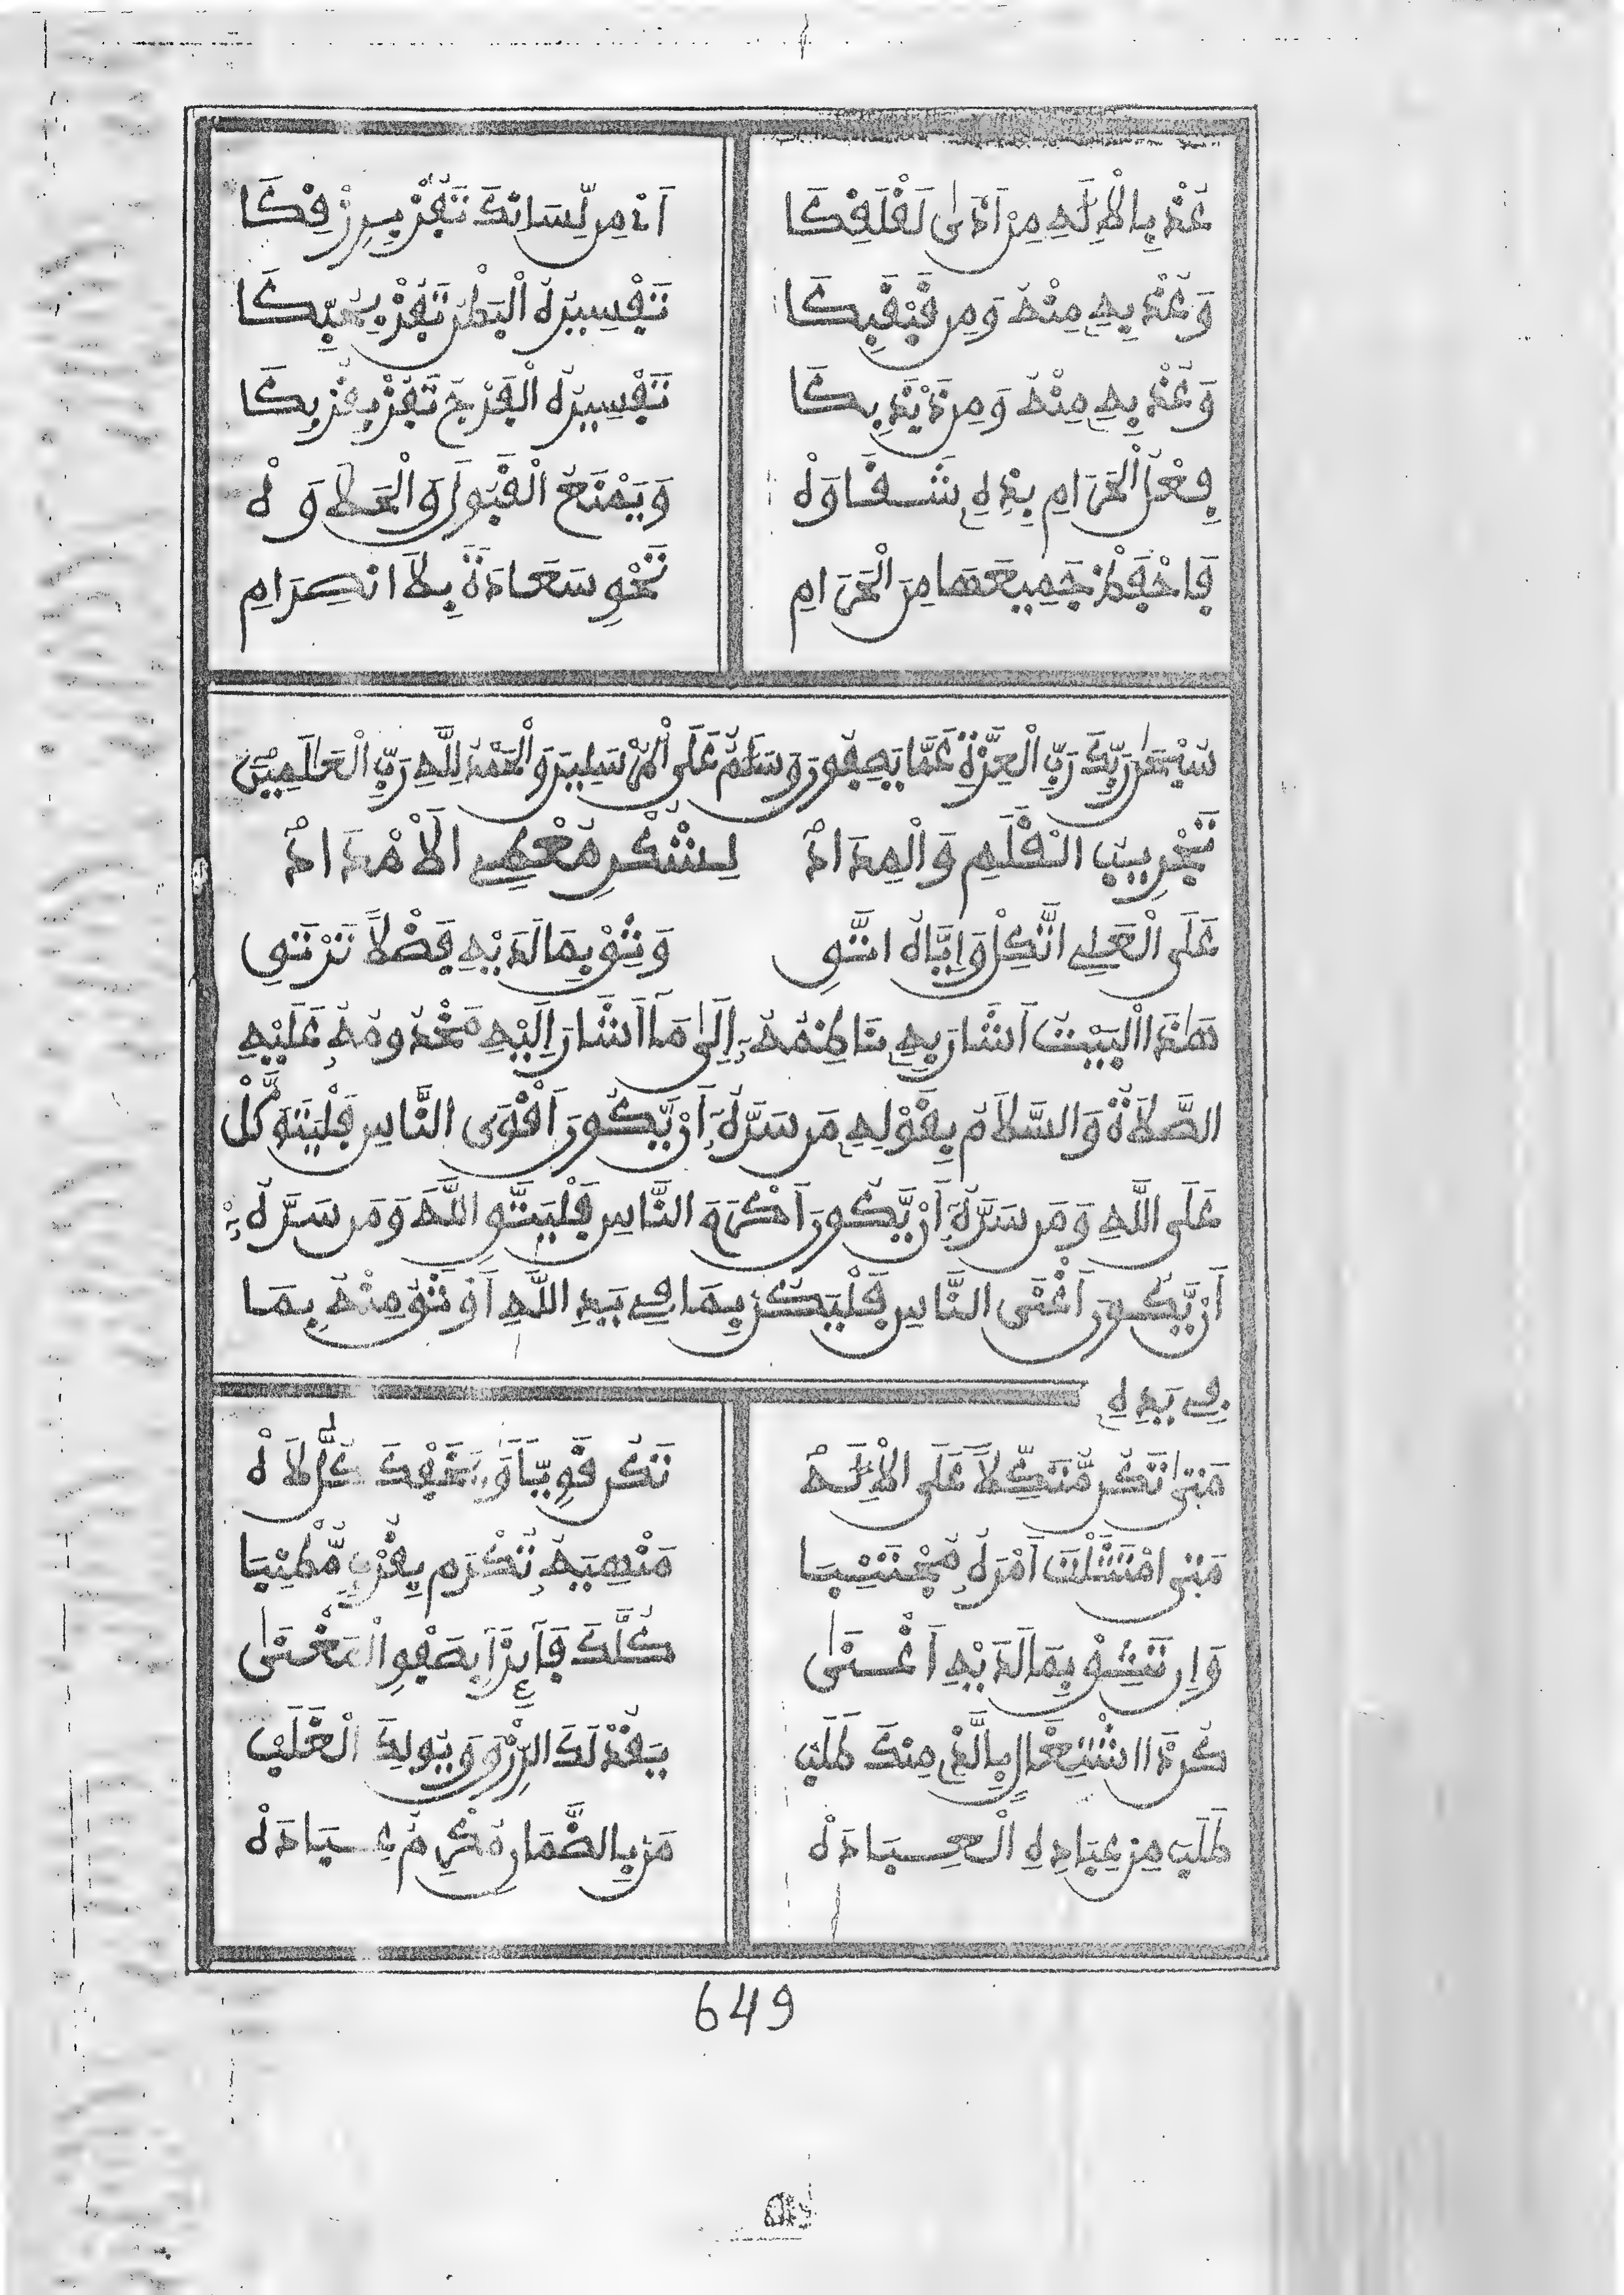 عُذْ بِالْإِلَٰهِ مِنْ أَذَىٰ لَقْلَقِكَا أَذٍ مِن لِّسَانِكَ تَفُزْ بِرِزْقِكَا
وَعُذْ بِهِ مِنْهُ وَمِن قَبْقَبِكَا تَفْسِيرُهُ الْبَطْنُ تَفُزْ بِحُبِّكَا
وَعُذْ بِهِ مِنْهُ وَمِن ذَبْذَبِكَا تَفْسِيرُهُ الْفَرْجُ تَفُزْ بِقُرْبِكَا
فِعْلُ الْحَرَامِ بِذِهِ شَقَاوَهْ وَيَمْنَعُ الْقَبُولَ وَالْحَلَاوَهْ
فَاحْفَظْ جَمِيعَهَا مِنَ الْحَرَامِ نَحْوِ سَعَادَةٍ بِلَا انصِرَامِ
سُبْحَٰنَ رَبِّكَ رَبِّ الْعِزَّةِ عَمَّا يَصِفُونَ وَسَلَٰمٌ عَلَى الْمُرْسَلِينَ وَالْحَمْدُ لِلَّهِ رَبِّ الْعَٰلَمِينَ
تَجْرِيبُ الْقَلَمِ وَالْمِدَادْ لِشُكْرِ مُعْطِي الْأَمْدَادْ
عَلَى الْعَلِي اتَّكِلْ وَإِيَّاهُ اتَّقِ وَثِقْ بِمَا لَدَيْهِ فَضْلًا تَرْتَقِ
هَٰذَا الْبَيْتُ أَشَارَ بِهِ نَاظِمُهُ إِلَىٰ مَا أَشَارَ إِلَيْهِ مَخْدُومُهُ عَلَيْهِ
الصَّلَاةُ وَالسَّلَامُ بِقَوْلِهِ مَن سَرَّهُ أَن يَّكُونَ أَقْوَى النَّاسِ فَلْيَتَوَكَّلْ
عَلَى اللَّهِ وَمَن سَرَّهُ أَن يَّكُونَ أَكْرَمَ النَّاسِ فَلْيَتَّقِ اللَّهَ وَمَن سَرَّهُ
أَن يَّكُونَ أَغْنَى النَّاسِ فَلْيَكُنْ بِمَا فِي يَدِ اللَّهِ أَوْثَقَ مِنْهُ بِمَا
فِي يَدِهِ
مَتَىٰ تَكُن مُّتَّكِلًا عَلَى الْإِلَٰهْ تَكُن قَوِيًّا كَلَاهْ
مَتَى امْتَثَلْتَ أَمْرَهُ مُجْتَنِبَا مَنْهِيَهُ تُكْرَم بِقُرْبٍ مُّطْنِبَا
وَإِن تَثِقْ بِمَا لَدَيْهِ أَغْنَىٰ كُلَّكَ فَآئِزًا بِصَفْوِ الْمَغْنَىٰ
كُن ذَا اشْتِغَالٍ بِالَّذِي مِنكَ طَلَبْ يَقُدْ لَكَ الرِّزْقَ وَيُولِكَ الْغَلَبْ
طَلَبَ مِنْ عِبَادِهِ الْعِبَادَهْ مَنْ بِالضَّمَانِ مُكْرِمٌ عِبَادَهْ
649